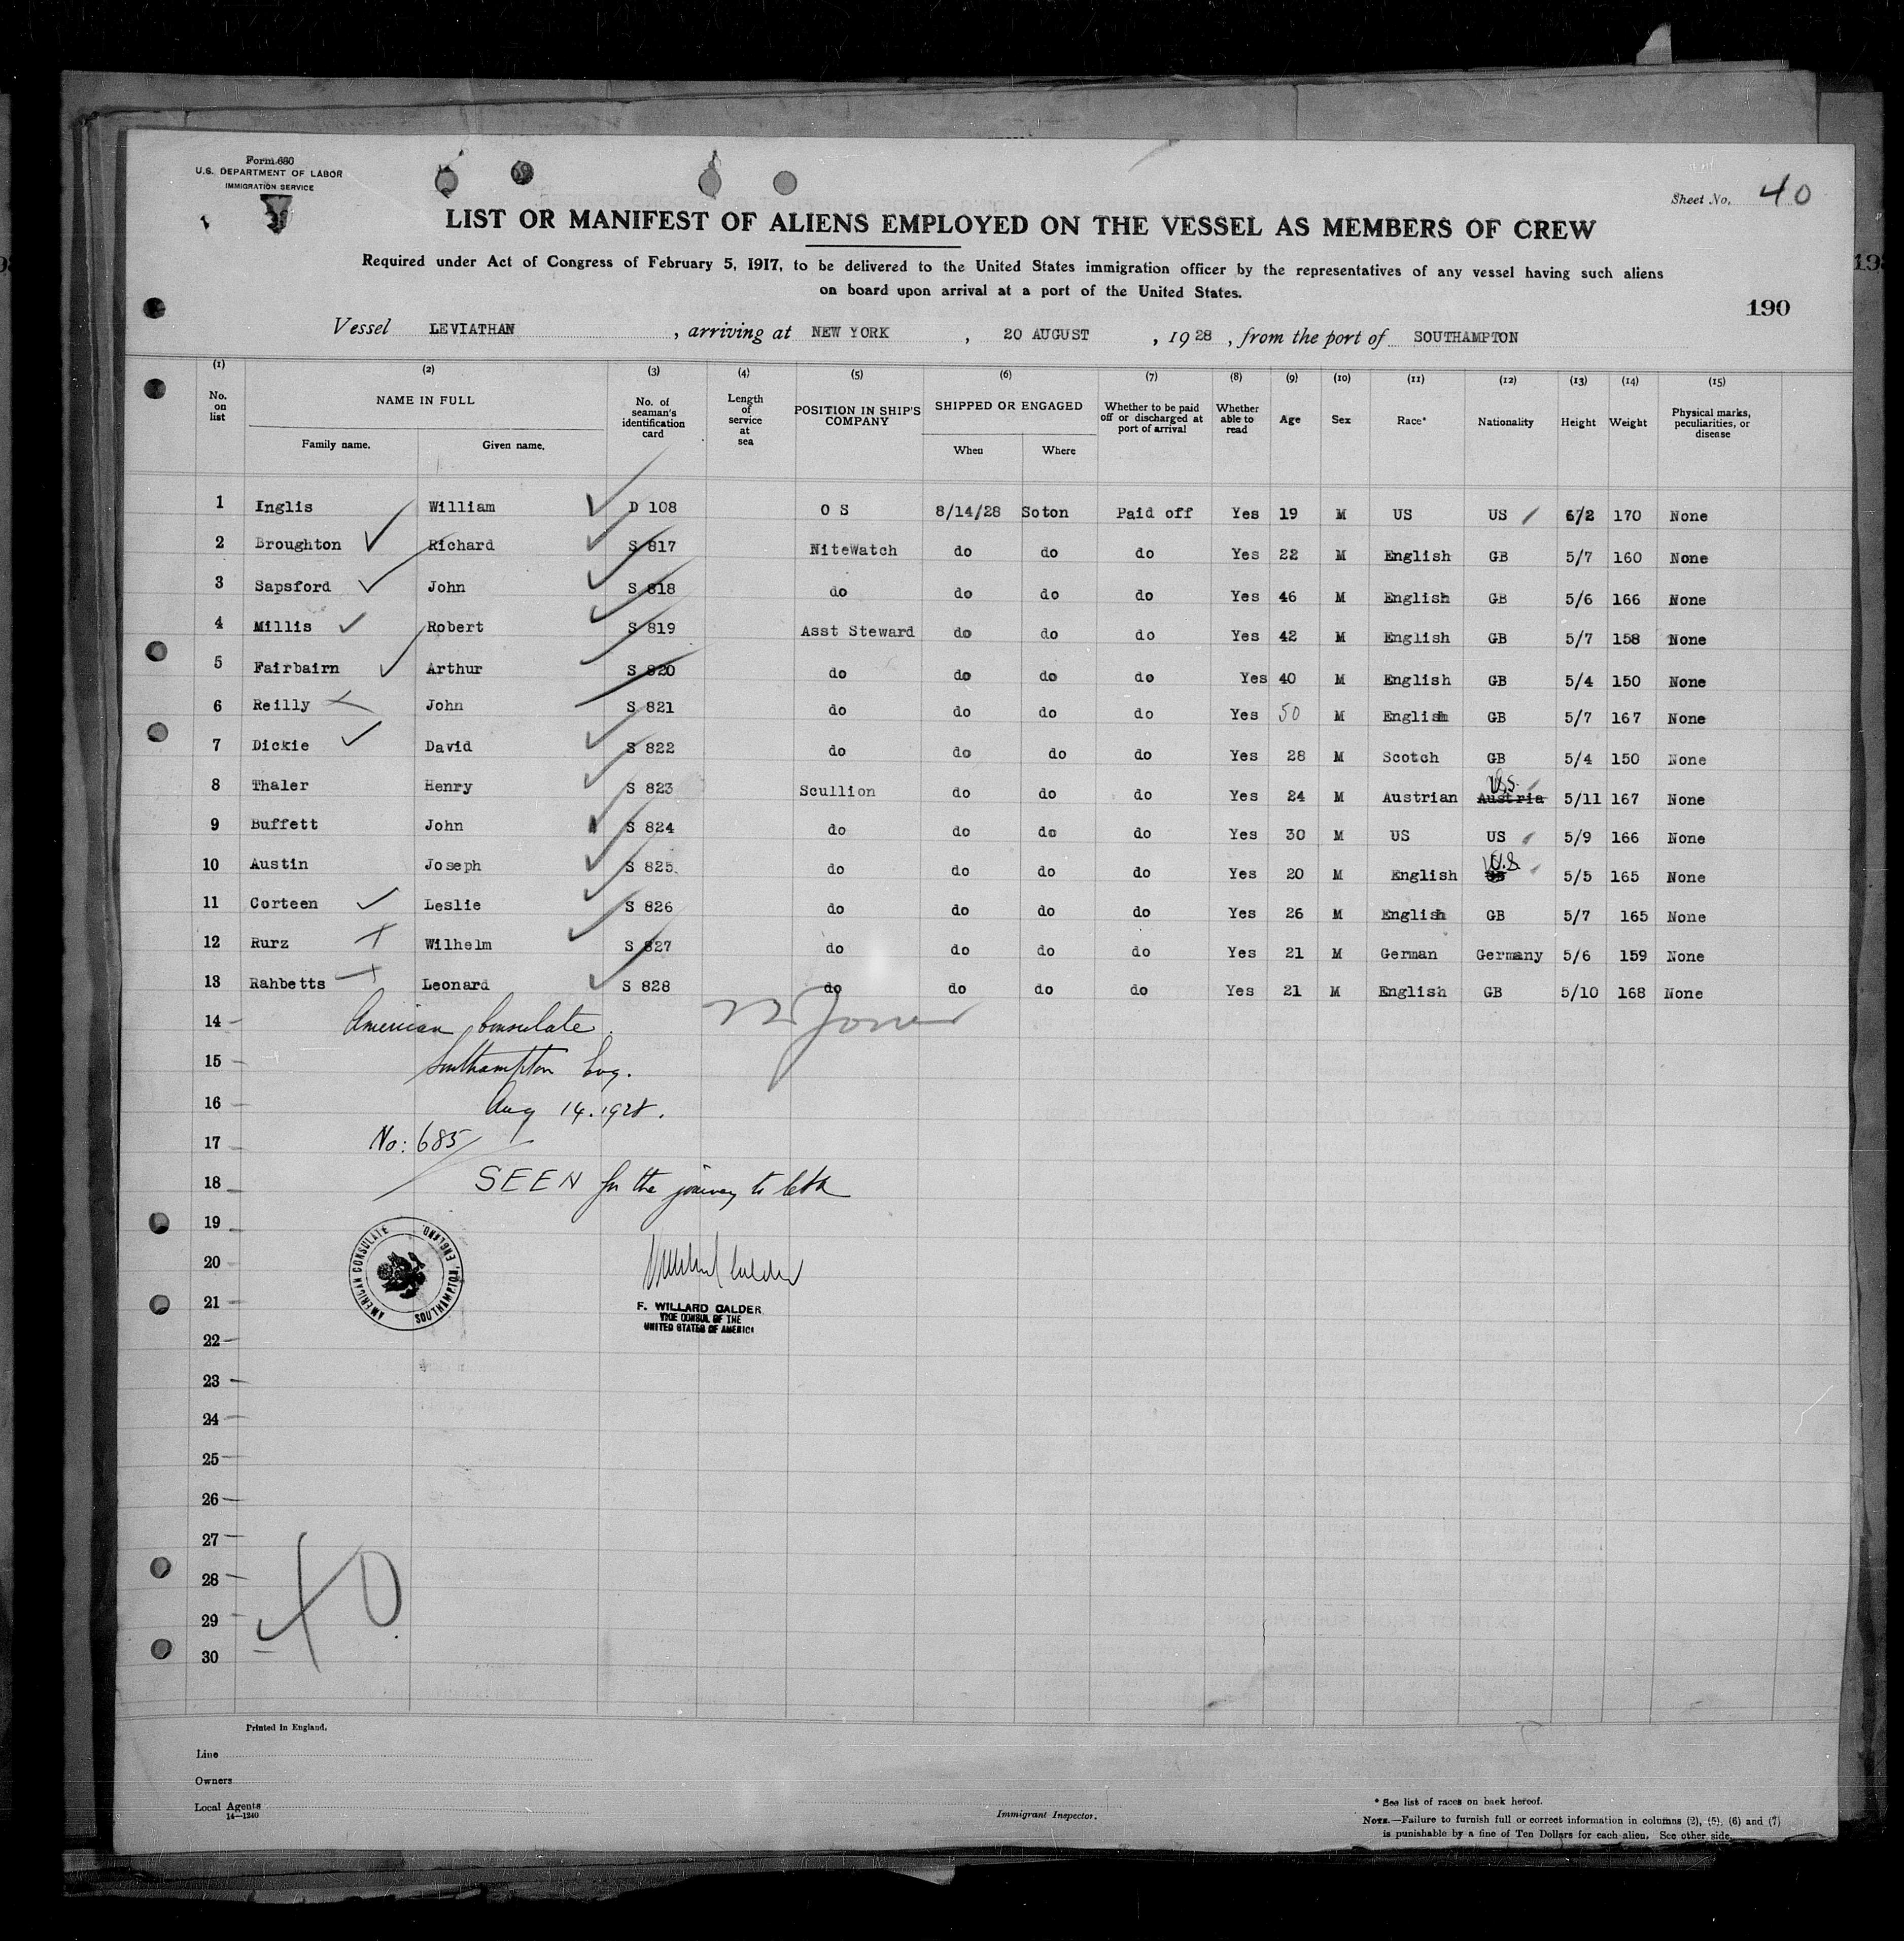 Form 680
U.S. DEPARTMENT OF LABOR
IMMIGRATION SERVICE
Sheet No. 40
LIST OR MANIFEST OF ALIENS EMPLOYED ON THE VESSEL AS MEMBERS OF CREW
Required under Act of Congress of February 5, 1917, to be delivered to the United States immigration officer by the representatives of any vessel having such aliens
on board upon arrival at a port of the United States.
190
Vessel LEVIATHAN, arriving at NEW YORK, 20 AUGUST, 1928, from the port of SOUTHAMPTON
(1) (2) (3) (4) (5) (6) (7) (8) (9) (10) (11) (12) (13) (14) (15)
No. on list NAME IN FULL Family name. Given name. No. of seaman's identification card Length of service at sea POSITION IN SHIP'S COMPANY SHIPPED OR ENGAGED When Where Whether to be paid off or discharged at port of arrival Whether able to read Age Sex Race* Nationality Height Weight Physical marks, peculiarities, or disease
1 Inglis William D 108 O S 8/14/28 Soton Paid off Yes 19 M US US 6/2 170 None
2 Broughton Richard S 817 NiteWatch do do do Yes 22 M English GB 5/7 160 None
3 Sapsford John S 818 do do do do Yes 46 M English GB 5/6 166 None
4 Millis Robert S 819 Asst Steward do do do Yes 42 M English GB 5/7 158 None
5 Fairbairn Arthur S 820 do do do do Yes 40 M English GB 5/4 150 None
6 Reilly John S 821 do do do do Yes 50 M English GB 5/7 167 None
7 Dickie David S 822 do do do do Yes 28 M Scotch GB 5/4 150 None
8 Thaler Henry S 823 Scullion do do do Yes 24 M Austrian Austria U.S. 5/11 167 None
9 Buffett John S 824 do do do do Yes 30 M US US 5/9 166 None
10 Austin Joseph S 825 do do do do Yes 20 M English U.S 5/5 165 None
11 Corteen Leslie S 826 do do do do Yes 26 M English GB 5/7 165 None
12 Rurz Wilhelm S 827 do do do do Yes 21 M German Germany 5/6 159 None
13 Rahbetts Leonard S 828 do do do do Yes 21 M English GB 5/10 168 None
14 American Consulate.
15 Southampton Eng.
16 Aug 14. 1928.
17 No: 685
18 SEEN for the journey to
19
20
AMERICAN CONSULATE SOUTHAMPTON, ENGLAND.
F. WILLARD CALDER
VICE CONSUL OF THE
UNITED STATES OF AMERICA
21
22
23
24
25
26
27
28
29
30
40
Printed in England.
Line
Owners
Local Agents
14—1240
Immigrant Inspector.
* See list of races on back hereof.
NOTE.—Failure to furnish full or correct information in columns (2), (5), (6) and (7)
is punishable by a fine of Ten Dollars for each alien. See other side.